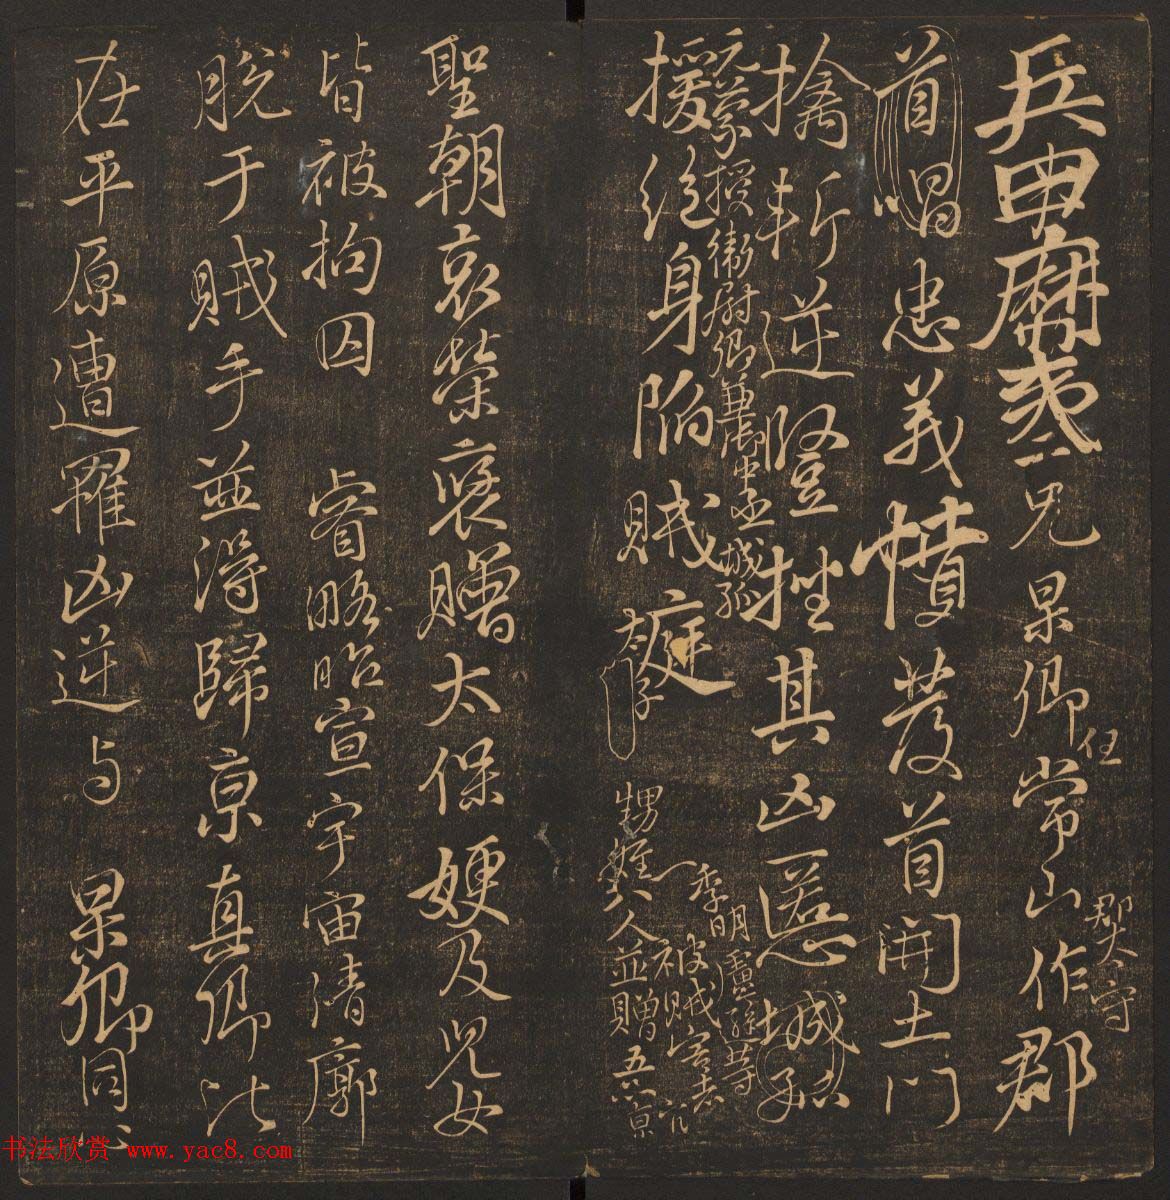 兵曹廨茂二兄杲卿任常山作郡
郡太守
首唱忠義憤發首開土門
擒斬逆竪挫其凶慝城孤
元蒙授衛尉卿兼御史中丞城孤
援絕身陷賊庭
太子
季明盧逖等
被賊害者八
甥姪
人並贈五品京
聖朝哀榮褒贈太保嫂及兒女
皆被拘囚 睿略昭宣宇宙清廓
脫于賊手並得歸京真卿比
在平原遭罹凶逆与 杲卿同
书法欣赏 www.yac8.com